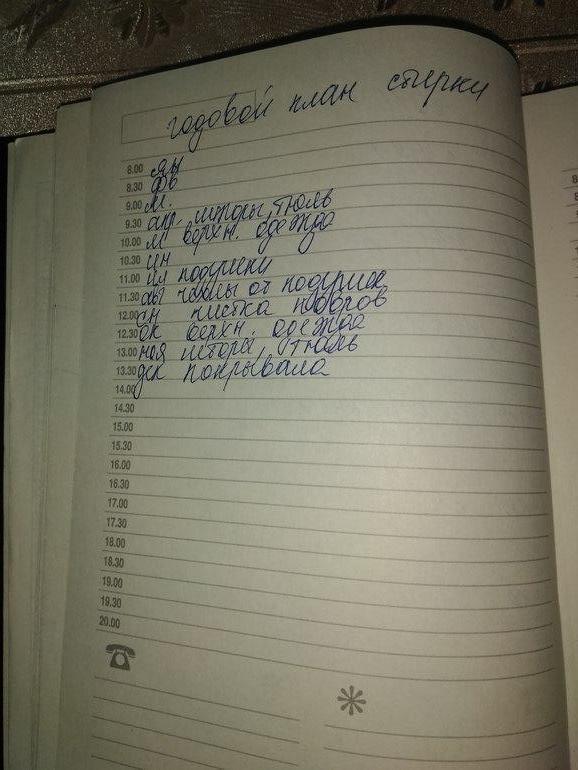 годовой план стирки
8.00 ян
8.30 фв
9.00 м.
9.30 апр. шторы, тюль
10.00 м верхн. одежда
10.30 ин
11.00 ил подушки
11.30 ав чехлы от подушек
12.00 сн чистка ковров
12.30 ок верхн. одежда
13.00 ноя шторы, тюль
13.30 дек покрывала
14.00
14.30
15.00
15.30
16.00
16.30
17.00
17.30
18.00
18.30
19.00
19.30
20.00